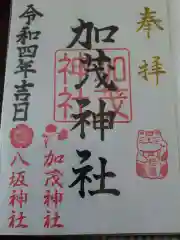 奉拝
加茂神社
加茂神社
令和四年吉日
加茂神社
八坂神社